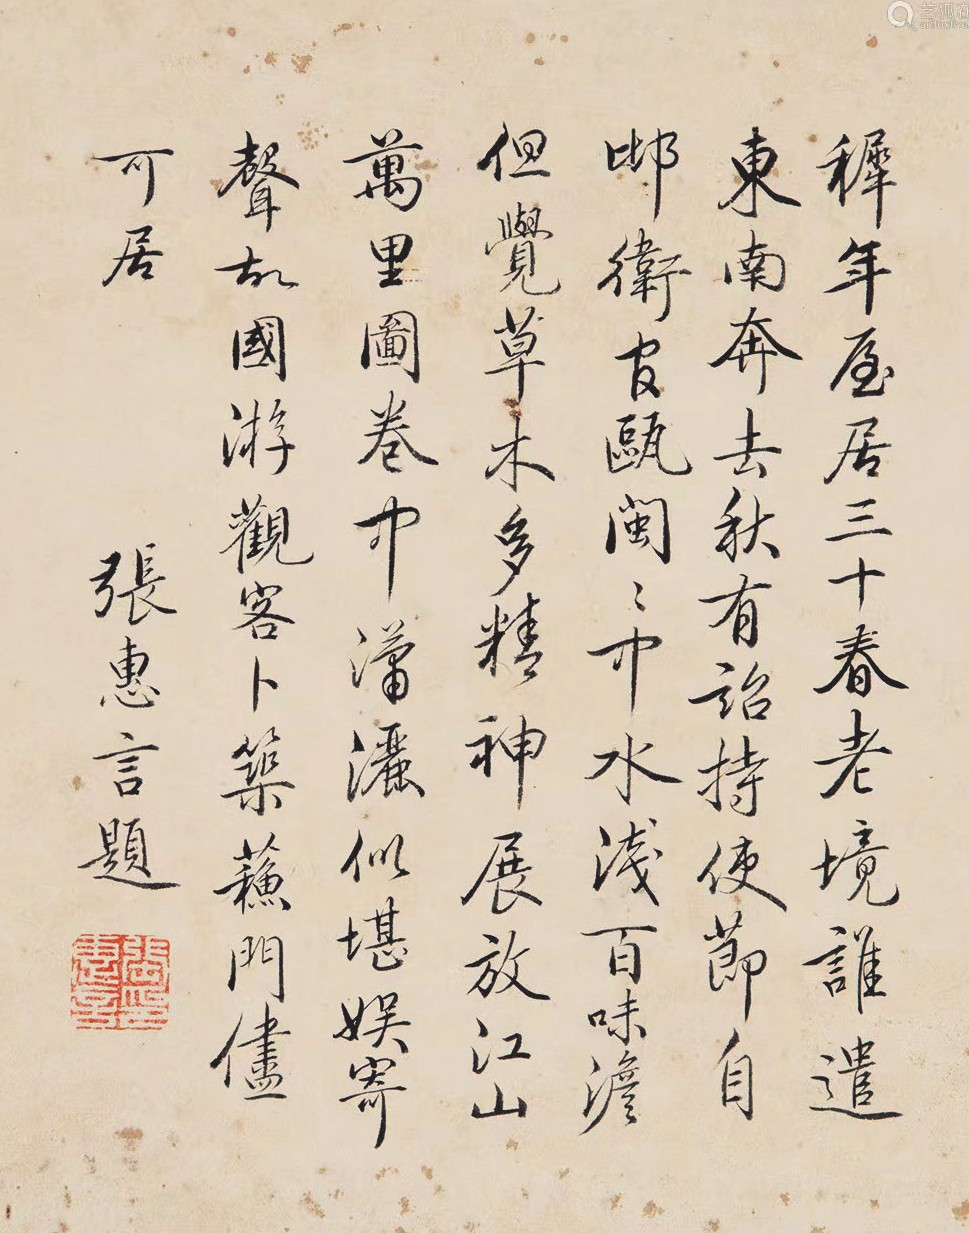 穉年屋居三十春老境誰遣
東南奔去秋有詔持使節自
邶衛官甌閩〻中水淺百味澹
但覺草木多精神展放江山
萬里圖卷中瀟灑似堪娱寄
聲故國游觀客卜築蘓門儘
可居
張惠言題